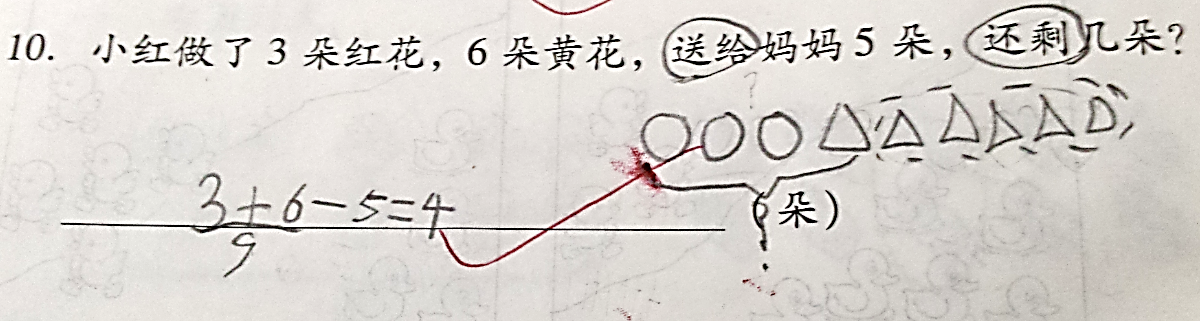 10. 小红做了3朵红花，6朵黄花，送给妈妈5朵，还剩几朵？
?
3+6-5=4
9
(朵)
?